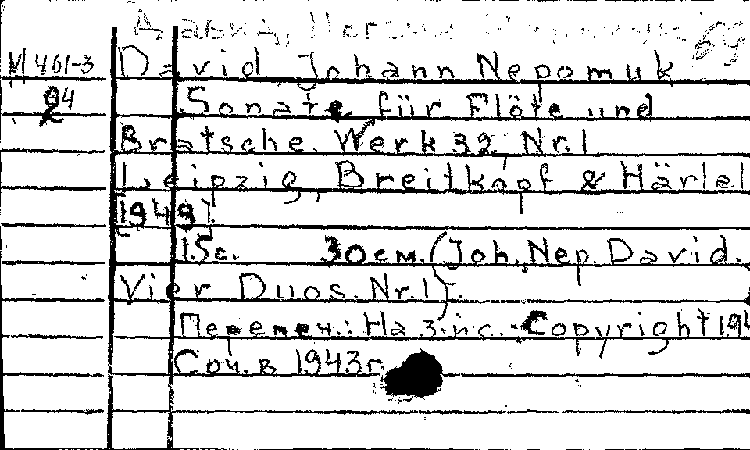 Давид,
М 461-3 David Johann Nepomuk
24 Sonate für Flöte und
Bratsche. Werk 32 Nr.1
Leipzig, Breitkopf & Härtel
[1949].
15с. 30см. (Joh. Nep. David.
Vier Duos. Nr.1).
Перепеч.: На 3.й с.: Copyright 194
Соч. в 1943г.